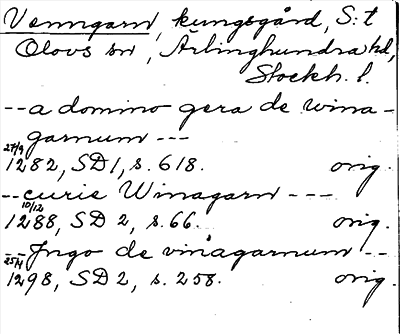 Venngarn, kungsgård, S:t
Olovs sn, Ärlinghundra hd,
Stockh. l.
-- a domino gera de wina-
garnum ---
27/9
1282, SD 1, s. 618. orig.
-- curie Winagarn ---
10/12
1288, SD 2, s. 66. orig.
-- Jngo de vinagarnum --
25/4
1298, SD 2, s. 258. orig.